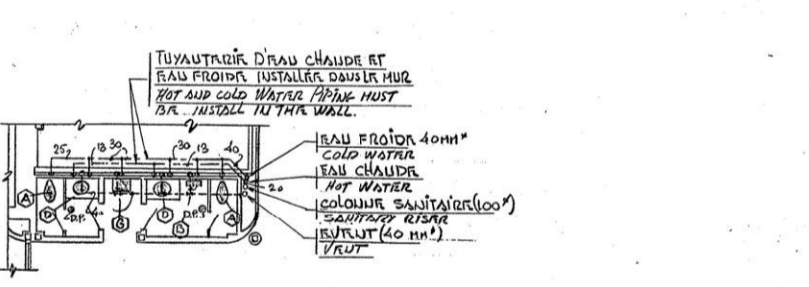 TUYAUTERIE D'EAU CHAUDE ET
EAU FROIDE INSTALLÉE DANS LE MUR
HOT AND COLD WATER PIPING MUST
BE INSTALL IN THE WALL.
25 13 30 30 13 40
EAU FROIDE 40MM
COLD WATER
EAU CHAUDE
HOT WATER
20
COLONNE SANITAIRE (100)
SANITARY RISER
EVENT (40 MM)
VENT
A D D.P. G D B D.P. A